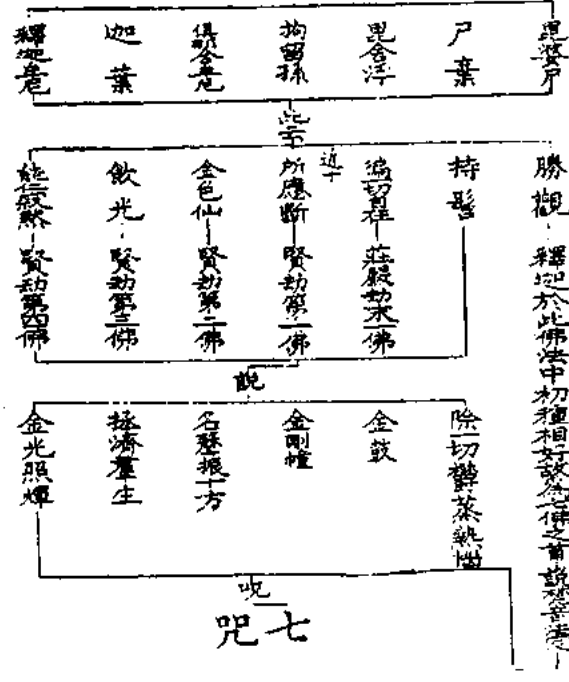 毘婆尸
尸棄
毘舍浮
拘留孫
俱那含牟尼
迦葉
釋迦牟尼
此云
勝觀 釋迦於此佛法中初種相好故為七佛之首說
持髻
遍一切自在 莊嚴劫末一佛
近才
所應斷 賢劫第一佛
金色仙 賢劫第二佛
飲光 賢劫第三佛
能仁寂默 賢劫第四佛
說
除一切鬱蒸熱惱
金鼓
金剛幢
名聲振十方
拯濟羣生
金光照煇
呪
七咒